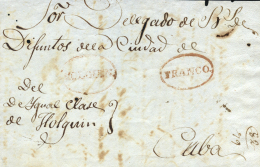 Por Delegado de Bs. de
Difuntos de la Ciudad de
HOLGUIN
FRANCO.
Del
de Ygual Clase
de Holguin
Cuba